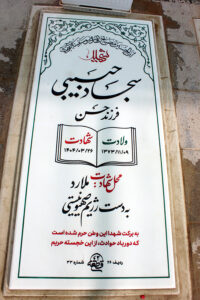 شهید
سجاد حبیبی
فرزند حسن
ولادت
۱۳۷۳/۱۱/۰۹
شهادت
۱۴۰۴/۰۳/۲۶
محل شهادت: ملارد
به دست رژیم صهیونیستی
به برکت شهدا این وطن حرم شده است
که دور باد حوادث، از این خجسته حریم
ردیف ۲۶ شماره ۳۳